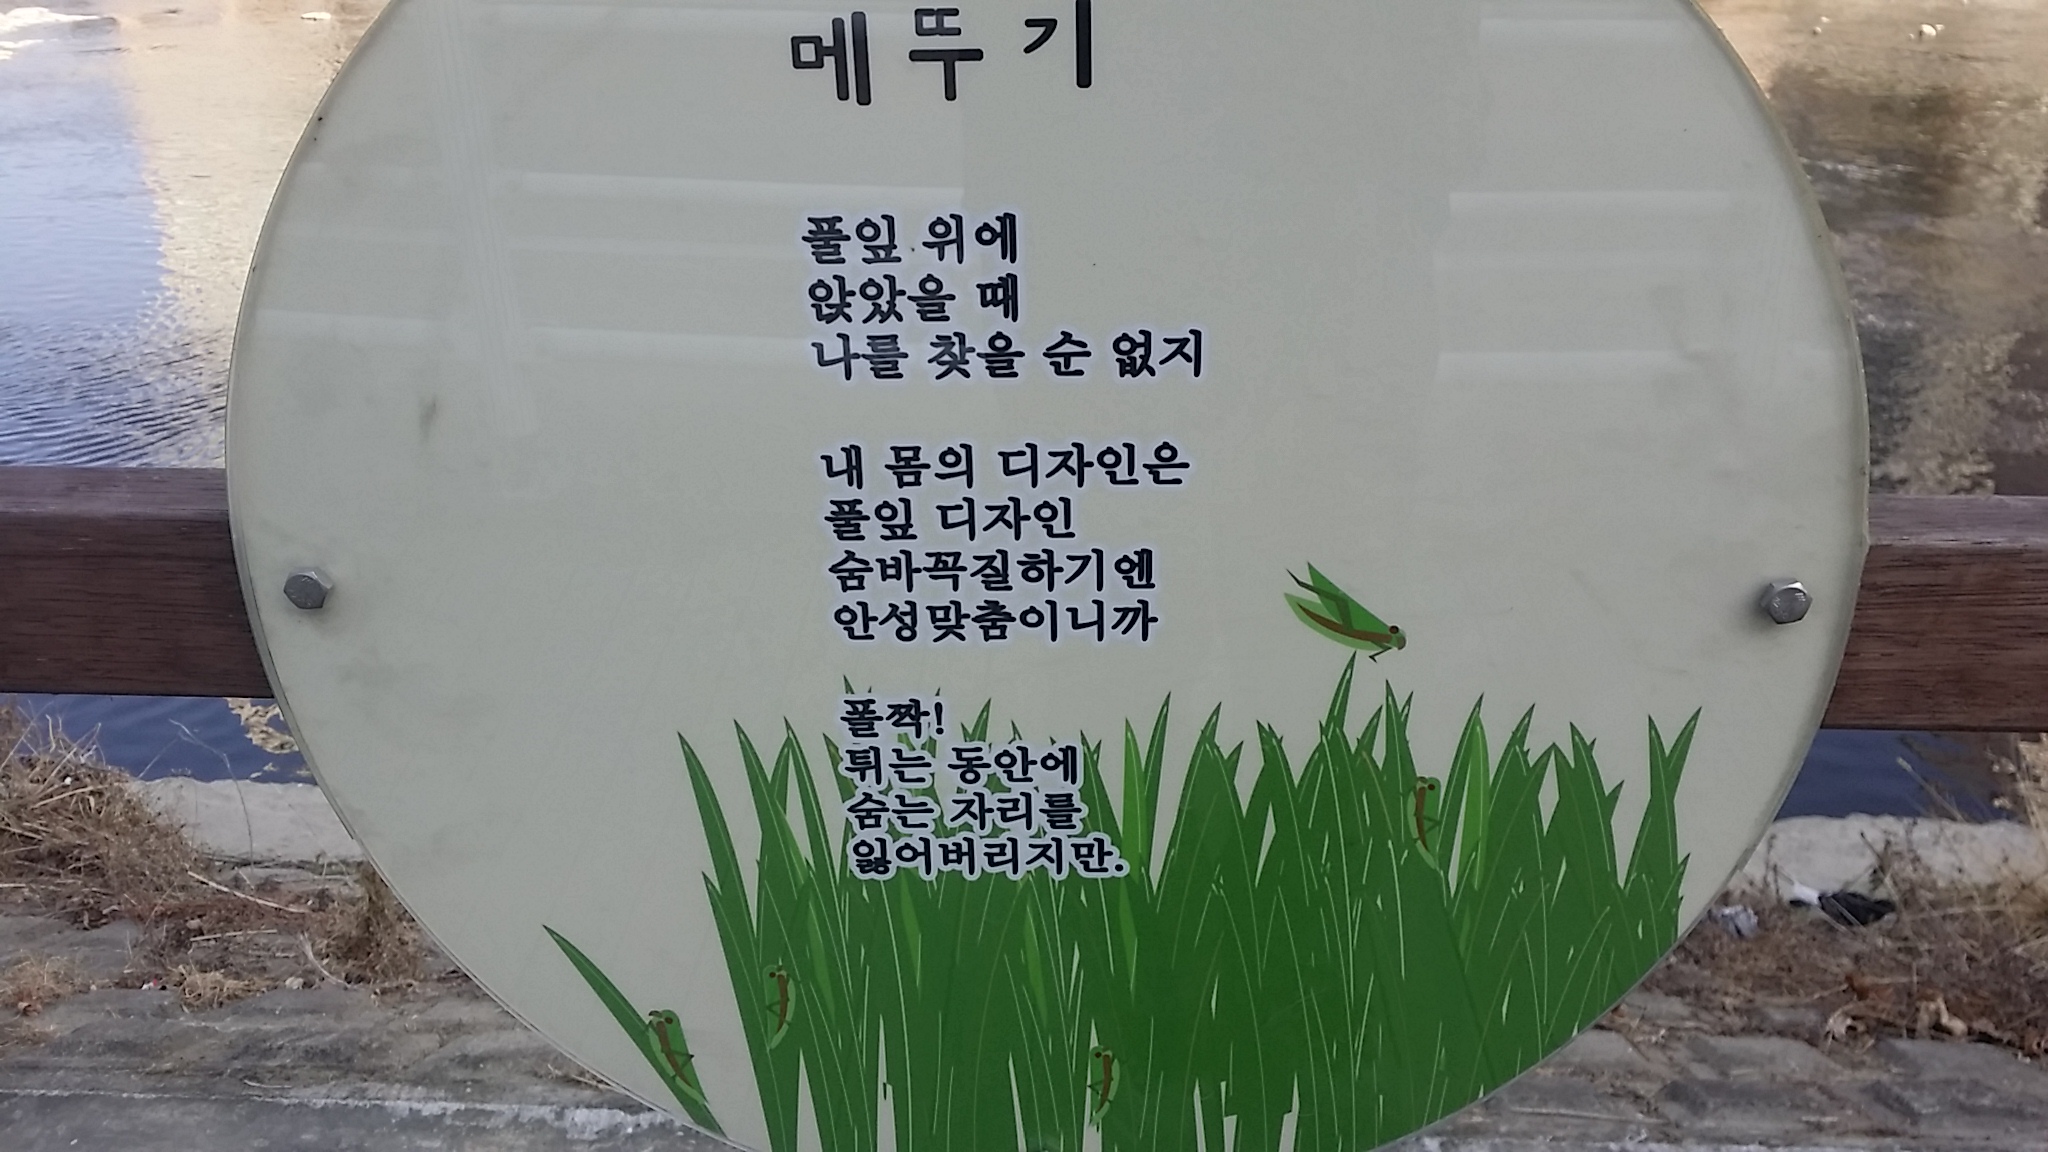 메뚜기
풀잎 위에
앉았을 때
나를 찾을 순 없지
내 몸의 디자인은
풀잎 디자인
숨바꼭질하기엔
안성맞춤이니까
폴짝!
튀는 동안에
숨는 자리를
잃어버리지만.